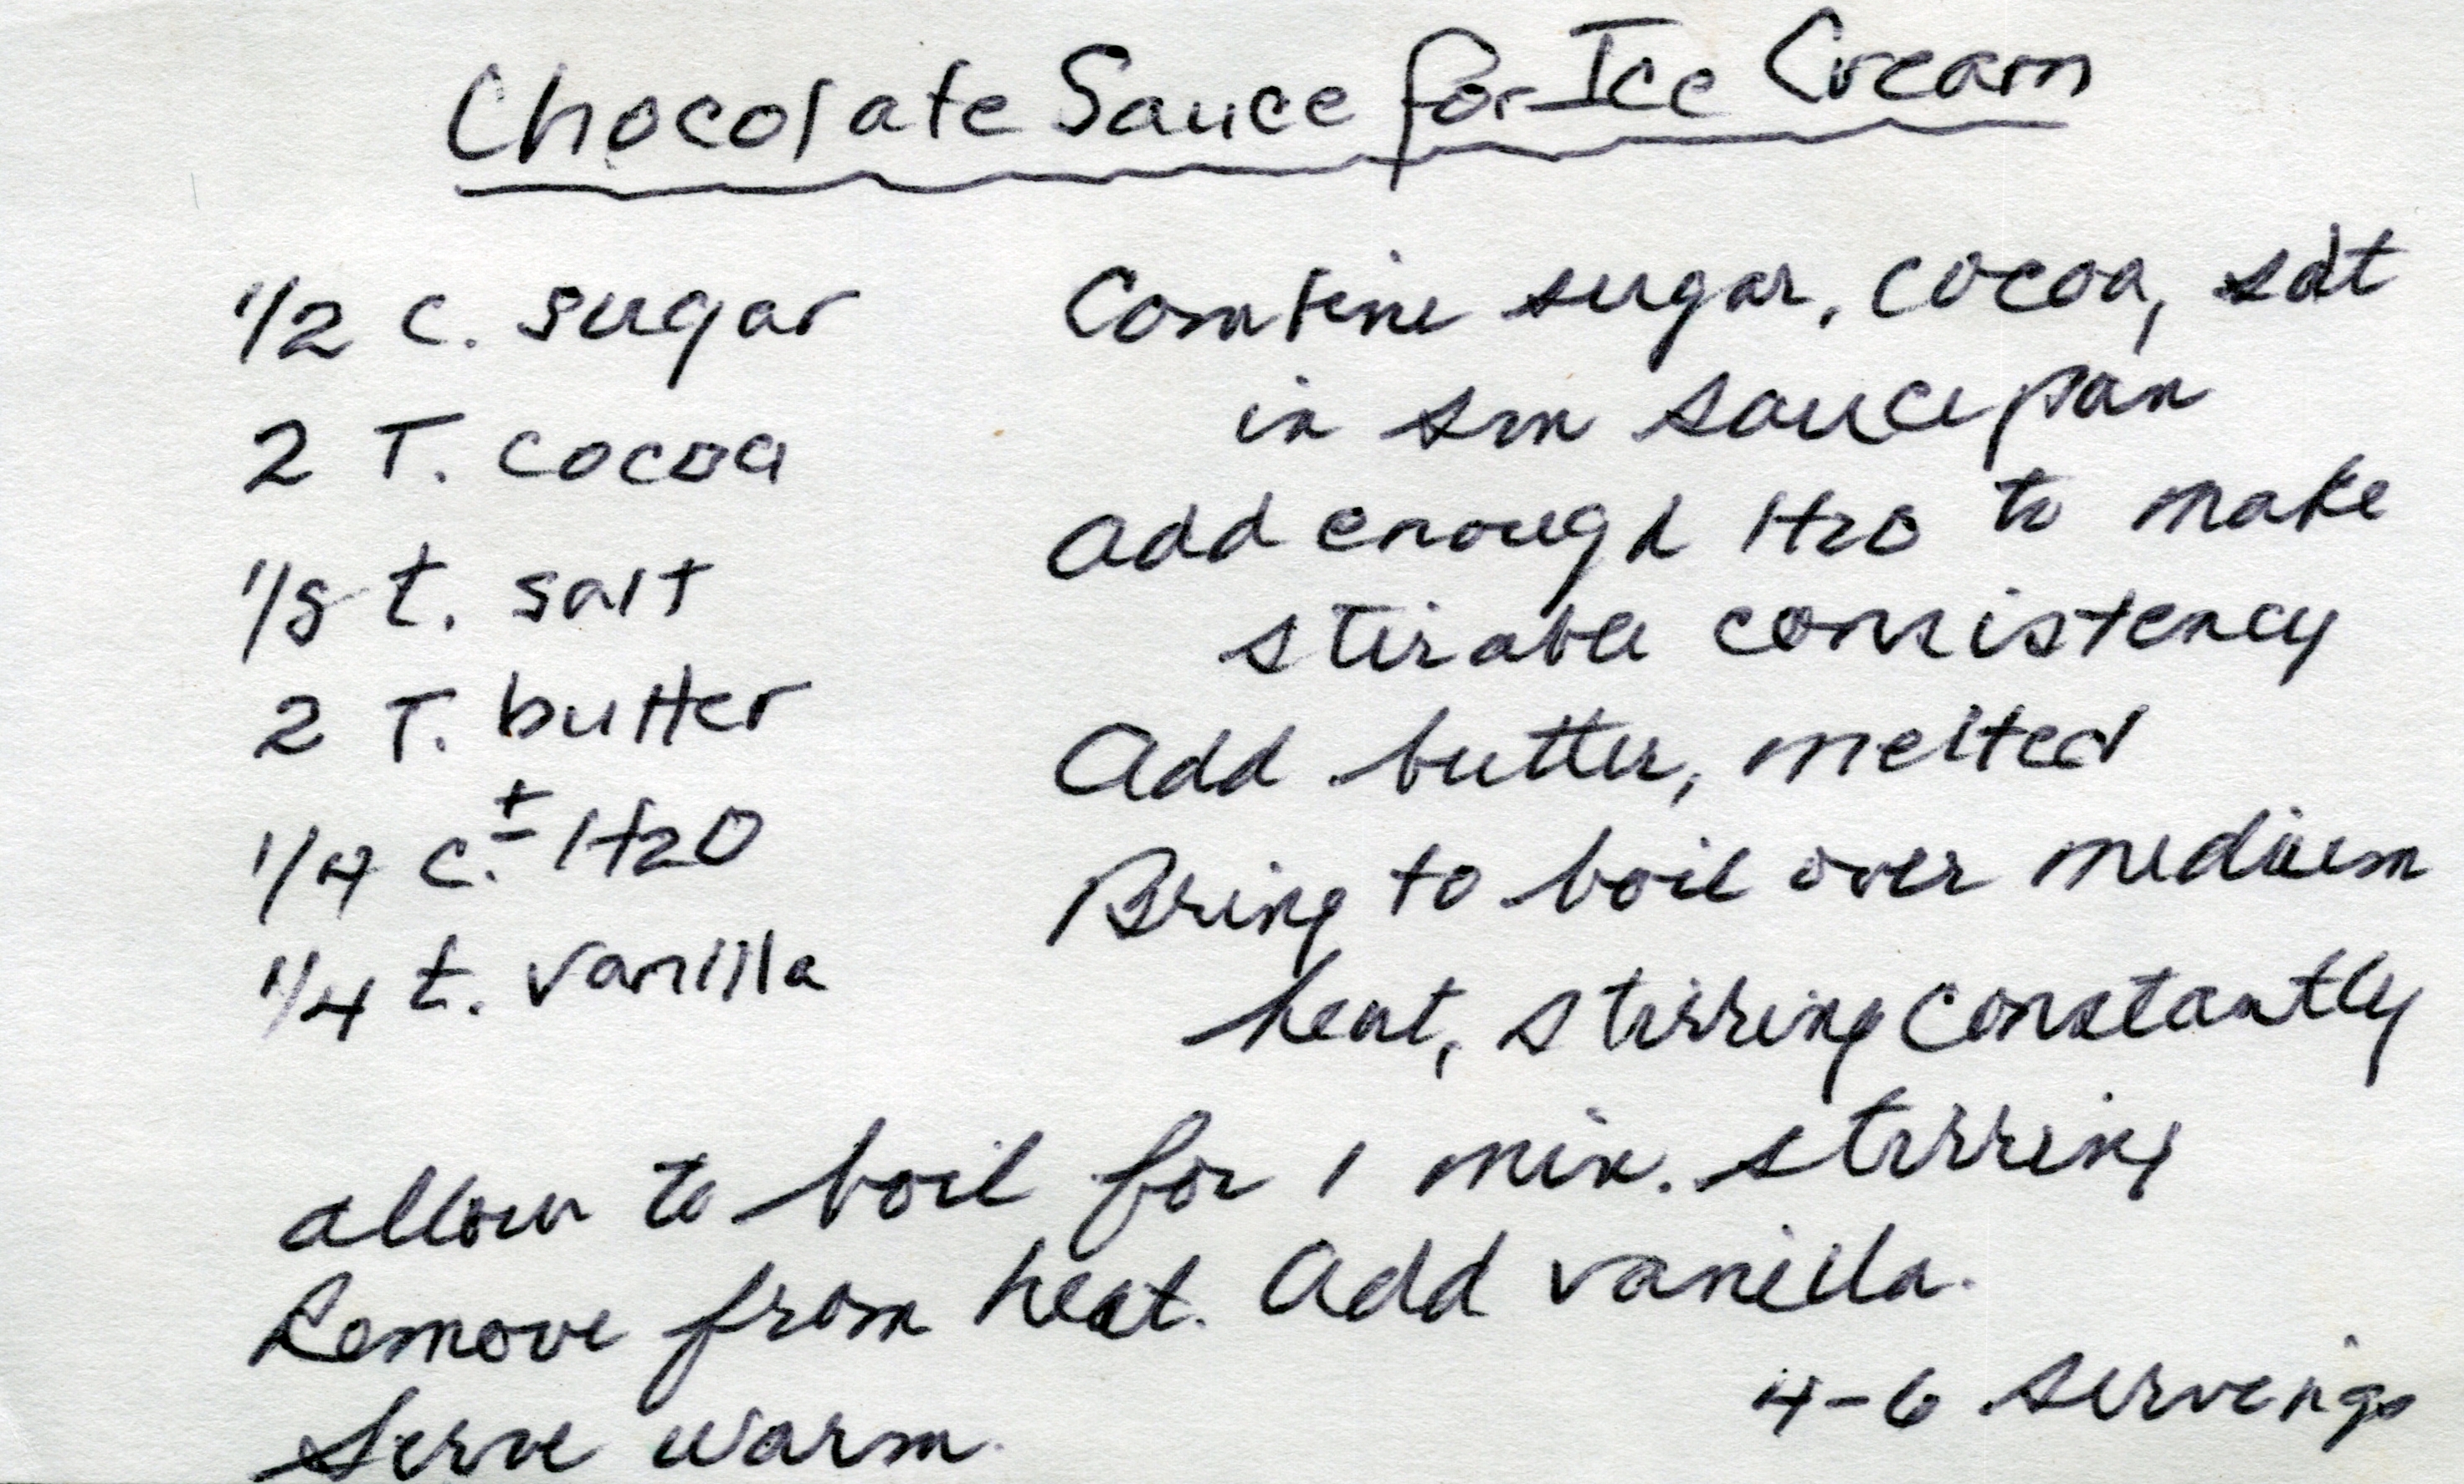 Chocolate Sauce for Ice Cream
1/2 c. sugar
2 T. cocoa
1/8 t. salt
2 T. butter
1/4 c. ± H2O
1/4 t. vanilla
Combine sugar, cocoa, salt
in sm saucepan
Add enough H2O to make
stirable consistency
Add butter, melted
Bring to boil over medium
heat, stirring constantly
allow to boil for 1 min. stirring
Remove from heat. Add vanilla.
Serve warm.
4-6 servings